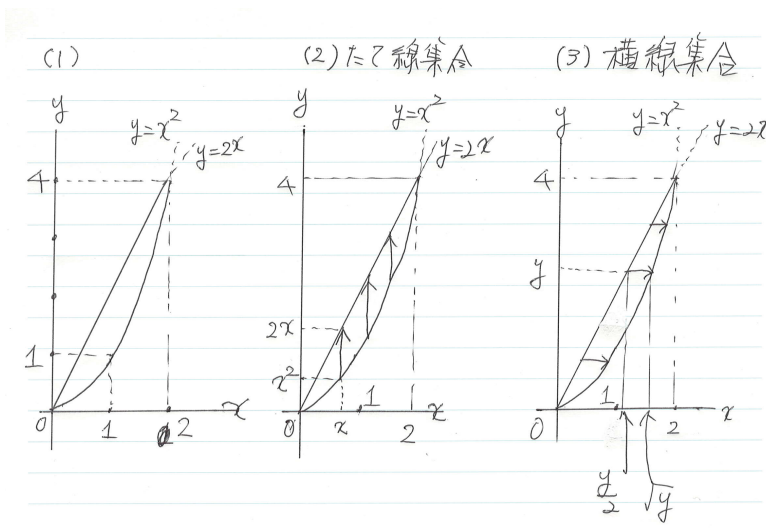 (1)
y
y=x²
y=2x
4
1
0
1
2
x
(2) たて線集合
y
y=x²
y=2x
4
2x
x²
0
x
1
2
x
(3) 横線集合
y
y=x²
y=2x
4
y
0
1
2
x
y/2
√y